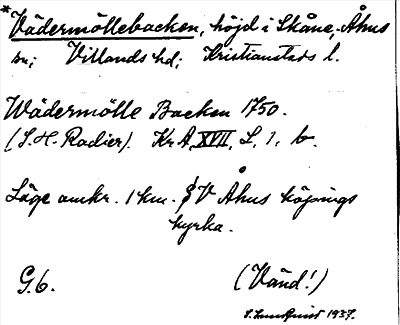 *Vädermöllebacken, höjd i Skåne, Åhus
sn; Villands hd; Kristianstads l.
Wädermölle Backen 1750.
(S.H. Radier). Kr A, XVII, L, 1, b.
Läge omkr. 1 km. V Åhus köpings
kyrka.
G.6.
(Vänd!)
1937.